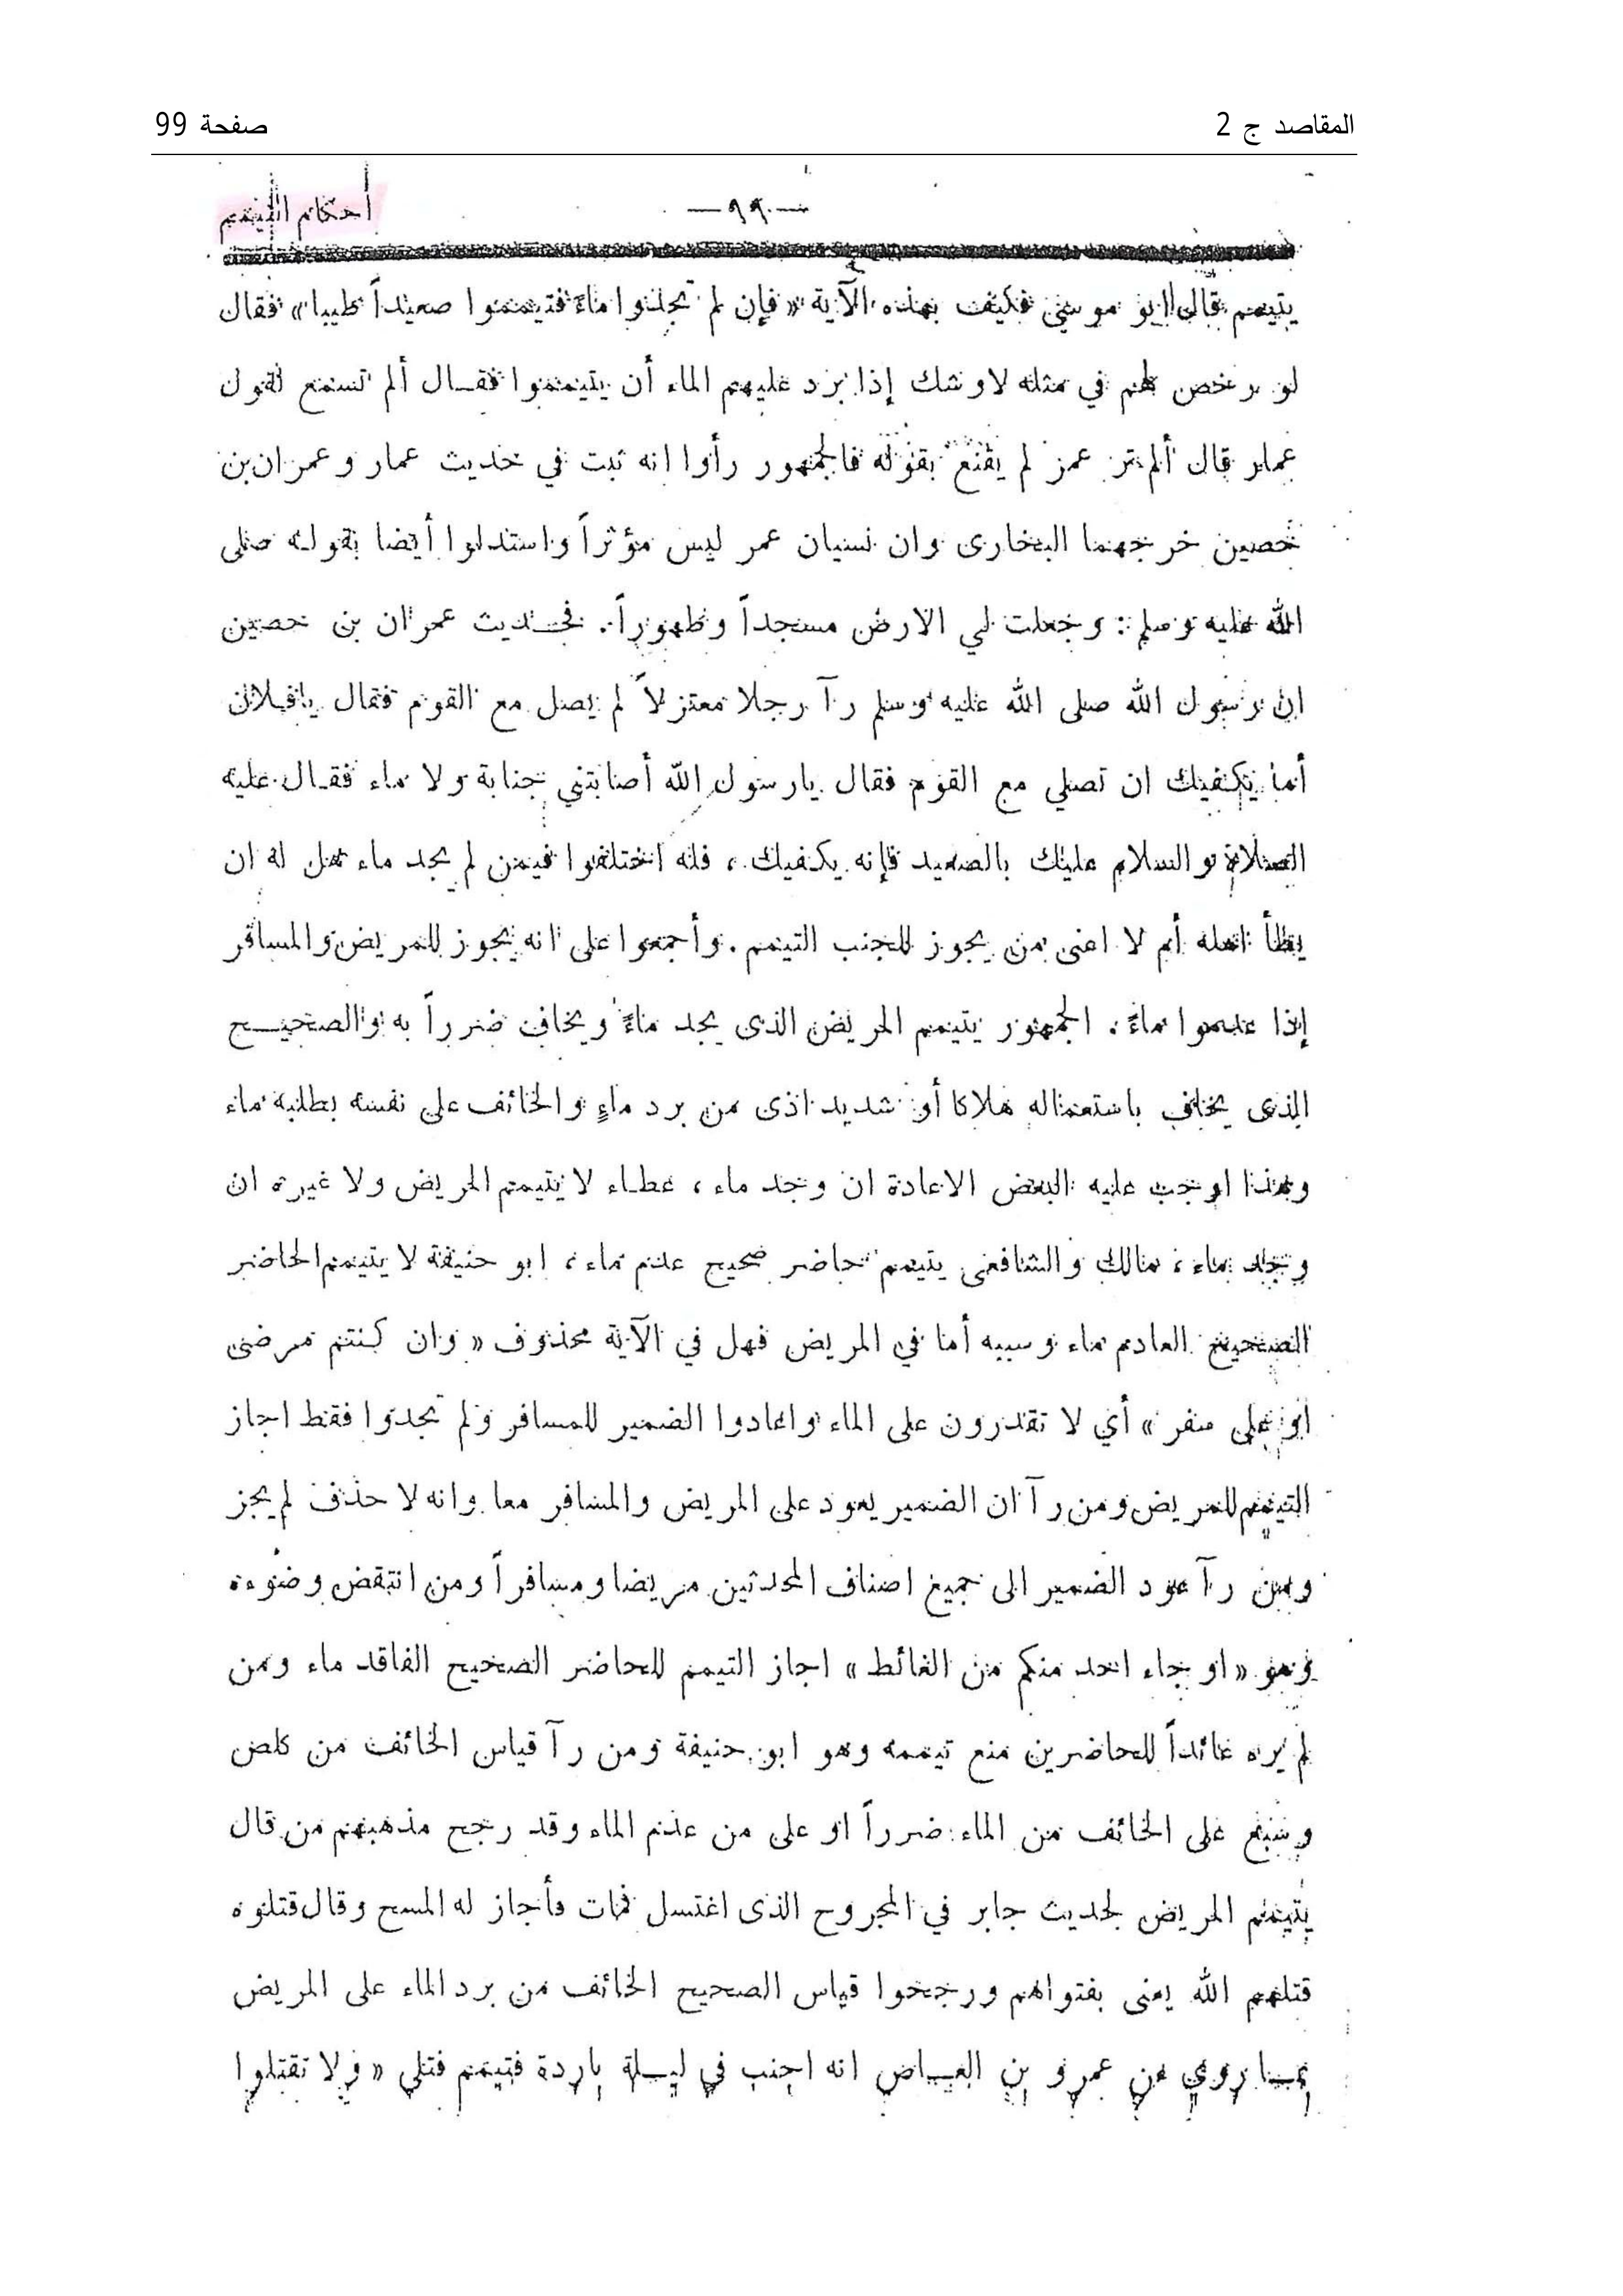 المقاصد ج 2
صفحة 99
أحكام التيمم
— ٩٩ —
يتيمم قال ابو موسى فكيف بهذه الآية « فإن لم تجدوا ماءً فتيمموا صعيداً طيبا » فقال
لو رخص لهم في مثله لاوشك إذا برد عليهم الماء أن يتيمموا فقال ألم تسمع لقول
عمار قال ألم تر عمر لم يقنع بقوله فالجمهور رأوا انه ثبت في حديث عمار وعمران بن
حصين خرجهما البخارى وان نسيان عمر ليس مؤثراً واستدلوا أيضا بقوله صلى
الله عليه وسلم : وجعلت لي الارض مسجداً وطهوراً . فحديث عمران بن حصين
ان رسول الله صلى الله عليه وسلم رآ رجلا معتزلاً لم يصل مع القوم فقال يافلان
أما يكفيك ان تصلي مع القوم فقال يارسول الله أصابتني جنابة ولا ماء فقال عليه
الصلاة والسلام عليك بالصعيد فإنه يكفيك ، فله اختلفوا فيمن لم يجد ماء هل له ان
يطأ اهله أم لا اعنى من يجوز للجنب التيمم . وأجمعوا على انه يجوز للمريض والمسافر
إذا عدموا ماءً . الجمهور يتيمم المريض الذى يجد ماءً ويخاف ضرراً به والصحيح
الذى يخاف باستعماله هلاكا أو شديد اذى من برد ماءٍ والخائف على نفسه بطلبه ماء
وبهذا اوجب عليه البعض الاعادة ان وجد ماء ، عطاء لا يتيمم المريض ولا غيره ان
وجد ماء ، مالك والشافعى يتيمم حاضر صحيح عدم ماء ، ابو حنيفة لا يتيمم الحاضر
الصحيح العادم ماء وسببه أما في المريض فهل في الآية محذوف « وان كنتم مرضى
او على سفر » أي لا تقدرون على الماء واعادوا الضمير للمسافر ولم تجدوا فقط اجاز
التيمم للمريض ومن رآ ان الضمير يعود على المريض والمسافر معا وانه لا حذف لم يجز
ومن رآ عود الضمير الى جميع اصناف المحدثين مريضا ومسافراً ومن انتقض وضوءه
وهو « او جاء احد منكم من الغائط » اجاز التيمم للحاضر الصحيح الفاقد ماء ومن
لم يره عائداً للحاضرين منع تيممه وهو ابو حنيفة ومن رآ قياس الخائف من كلص
وسبع على الخائف من الماء ضرراً او على من عدم الماء وقد رجح مذهبهم من قال
يتيمم المريض لحديث جابر في المجروح الذى اغتسل فمات فأجاز له المسح وقال قتلوه
قتلهم الله يعنى بفتواهم ورجحوا قياس الصحيح الخائف من برد الماء على المريض
بما روي عن عمرو بن العاص انه اجنب في ليلة باردة فتيمم فتلى « ولا تقتلوا